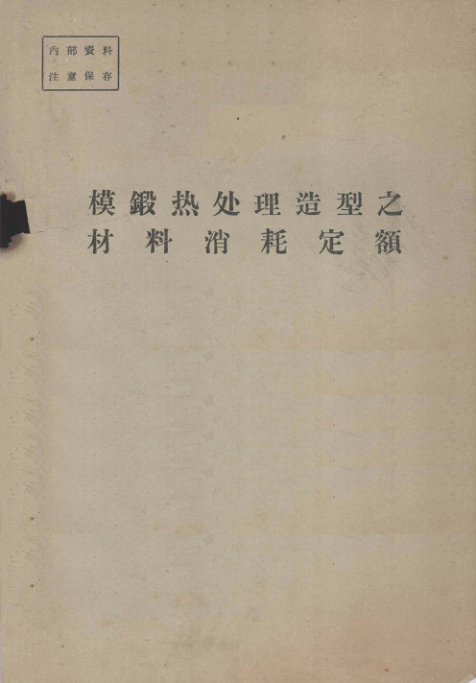 内部資料
注意保存
模鍛热处理造型之
材料消耗定額